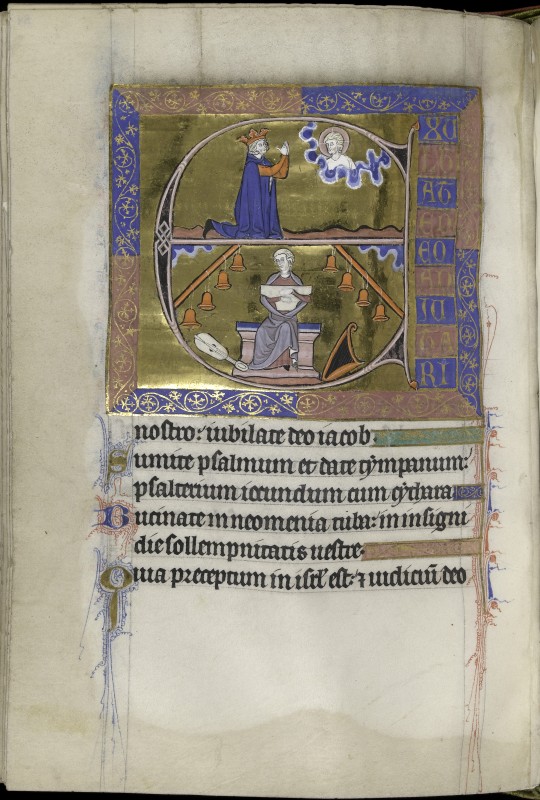 E XU
LT
AT
ED
EO
AD
IU
TO
RI
nostro: iubilate deo iacob.
Sumite psalmum et date tympanum:
psalterium iocundum cum cythara
Bucinate in neomenia tuba: in insigni
die sollempnitatis uestre.
Quia preceptum in isrl est: ⁊ iudiciū deo